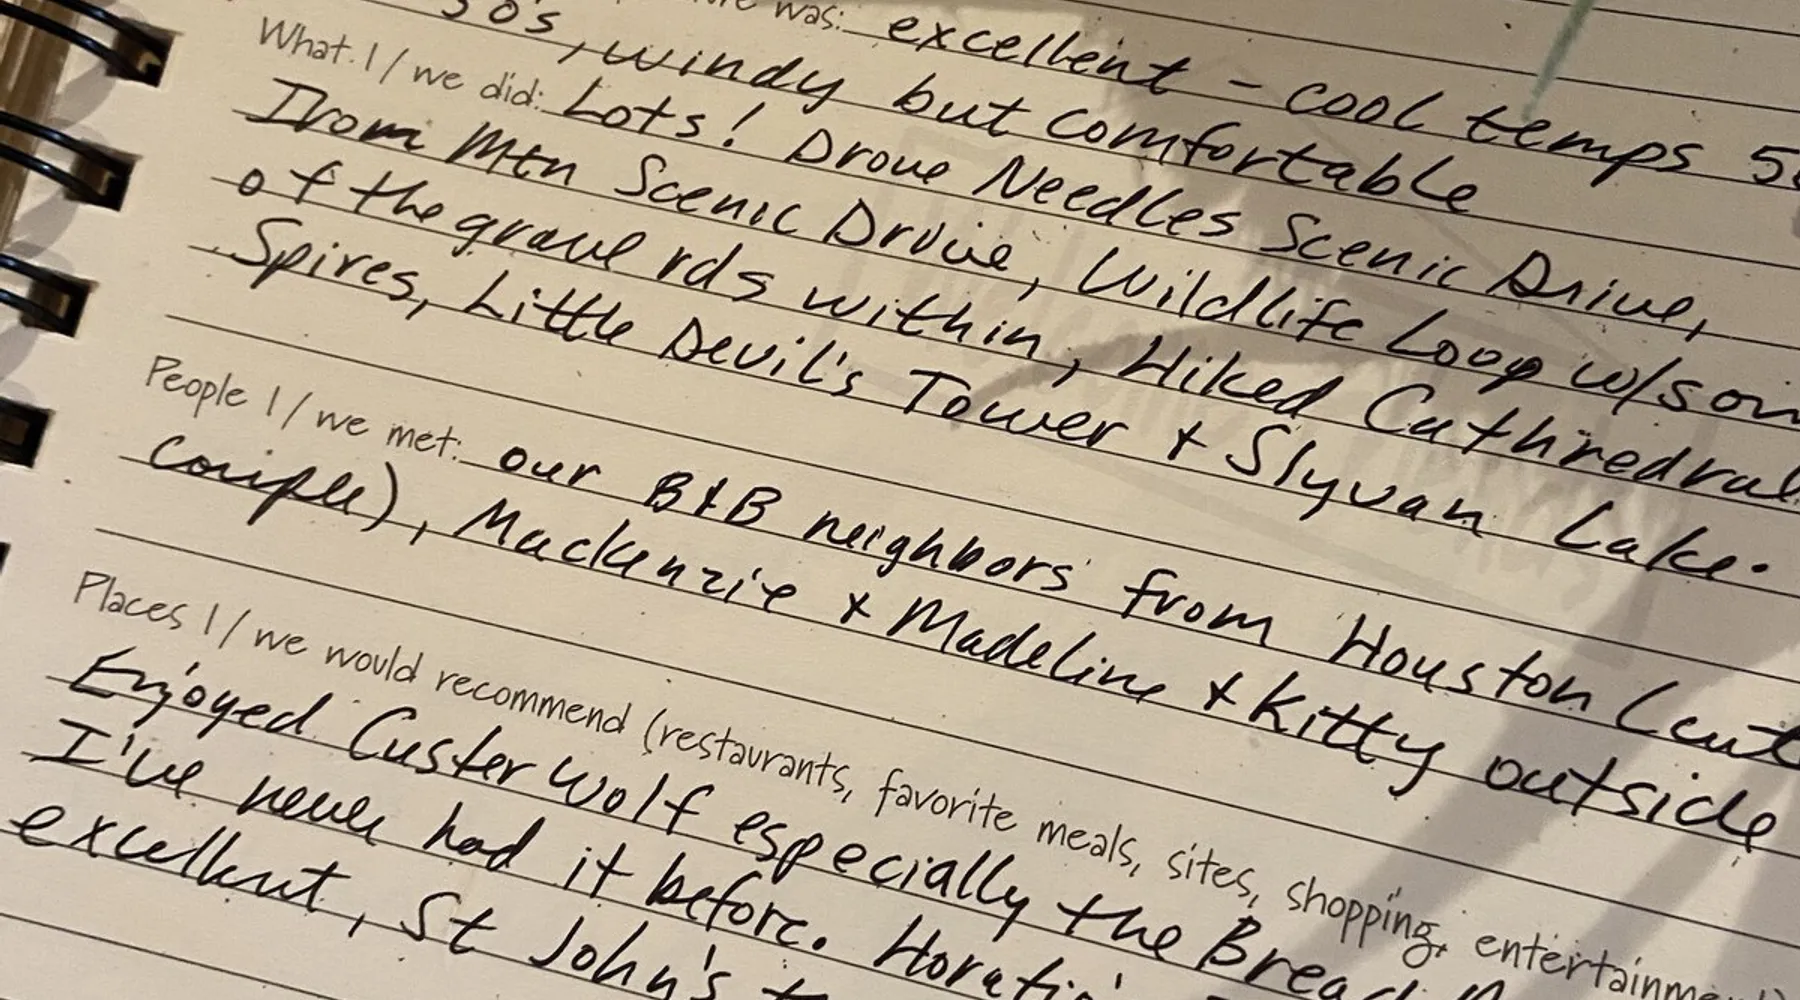 was: excellent - cool temps 50
30's, windy but comfortable
What I / we did: Lots! Drove Needles Scenic Drive,
Iron Mtn Scenic Drive, Wildlife Loop w/som
of the gravel rds within, Hiked Cathredral
Spires, Little Devil's Tower + Slyvan Lake.
People I / we met: our B+B neighbors from Houston (cut
couple), Mackenzie + Madeline + Kitty outside
Places I / we would recommend (restaurants, favorite meals, sites, shopping, entertainment)
Enjoyed Custer Wolf especially the Bread
I've never had it before. Horatio's
excellent, St John's